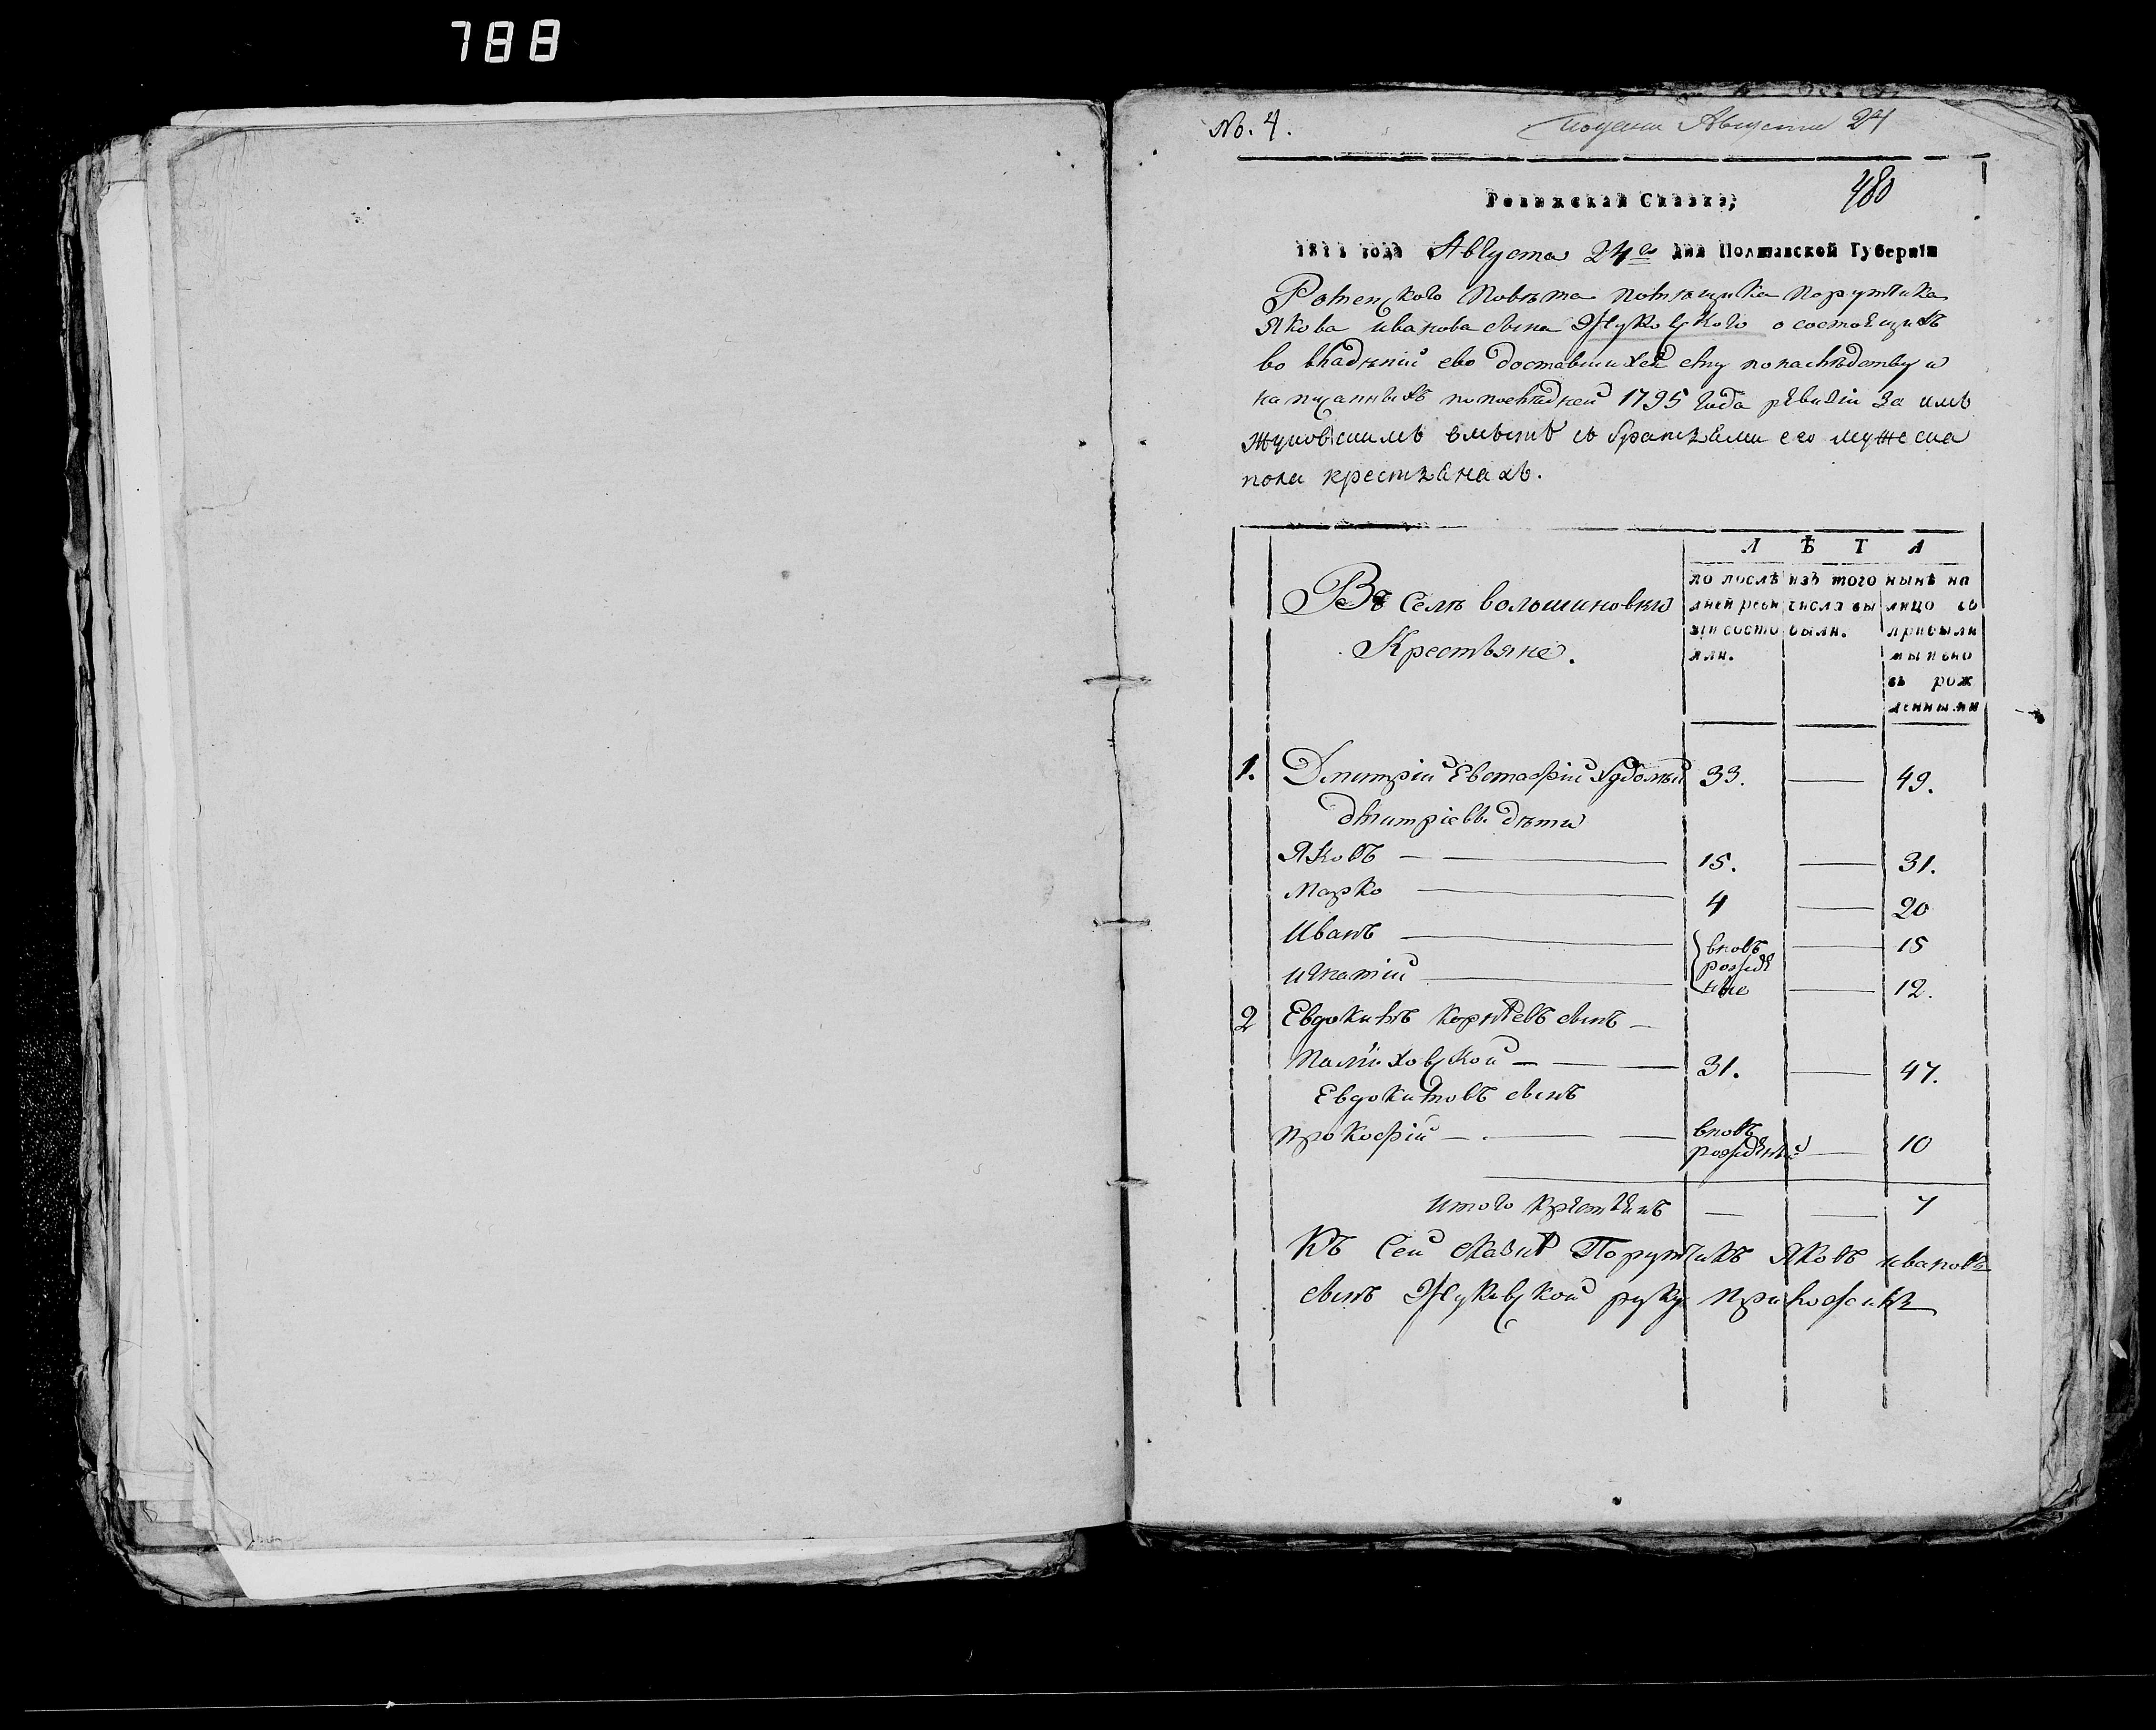 788
No. 4.
Августа 24
480
Ревижская Сказка,
1811 года Августа 24го дня Полтавской Губерніи
Роменского Повѣта помѣщика порутчика
Якова иванова сына Жуковского о состоящихъ
во владѣнии ево доставшихся ему по наслѣдству и
написанныхъ по последней 1795 года ревизіи за имъ
Жуковскимъ вместѣ съ братьями его мужеска
пола крестьянахъ.
Въ Селѣ волошиновки
Крестьяне.
Л Ѣ Т А
по послѣ
дней реви
зіи состо
яли.
изъ того
числа вы
были.
нынѣ на
лицо со
прибыли
ми и вно
въ рож
денными
1. Дмитрій Евстафіи 33. — 49.
дмитріевы дѣти
Яковъ — 15. — 31.
Марко — 4 — 20
Иванъ — вновь — 15
рожде
игнатій — ные — 12.
2 Евдокимъ Корнѣевъ сынъ —
Палиховской — 31. — 47.
Евдокимовъ сынъ
Прокофій — вновь рожденный — 10
итого крестьянъ — — 7
Къ сей сказкѣ Порутчикъ Яковъ ивановъ
сынъ Жуковской руку приложилъ